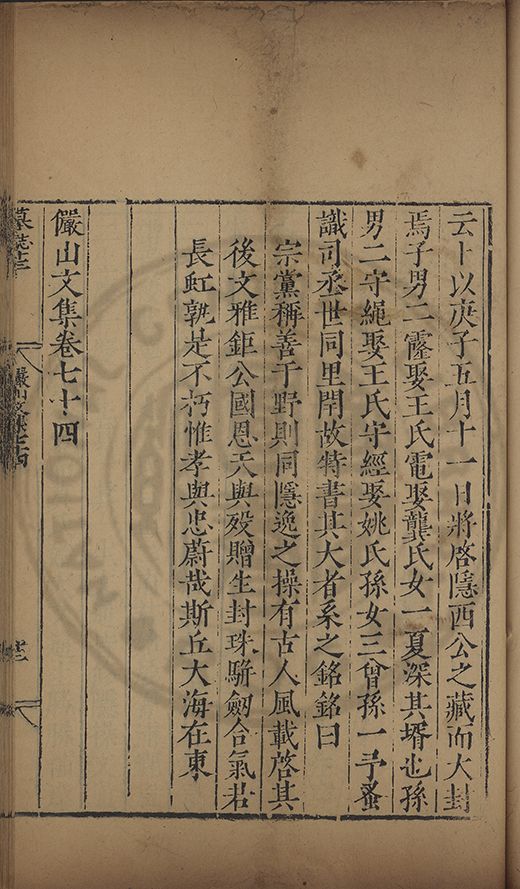 云卜以庚子五月十一日將啓隱西公之藏而大封
焉子男二霳娶王氏電娶龔氏女一夏深其壻也孫
男二守繩娶王氏守經娶姚氏孫女三曾孫一予蚤
識司丞世同里閈故特書其大者系之銘銘曰
宗黨稱善于野則同隱逸之操有古人風載啓其
後文雅鉅公國恩天與殁贈生封珠騈劒合氣若
長虹孰是不朽惟孝與忠蔚哉斯丘大海在東
儼山文集卷七十四
墓誌十二